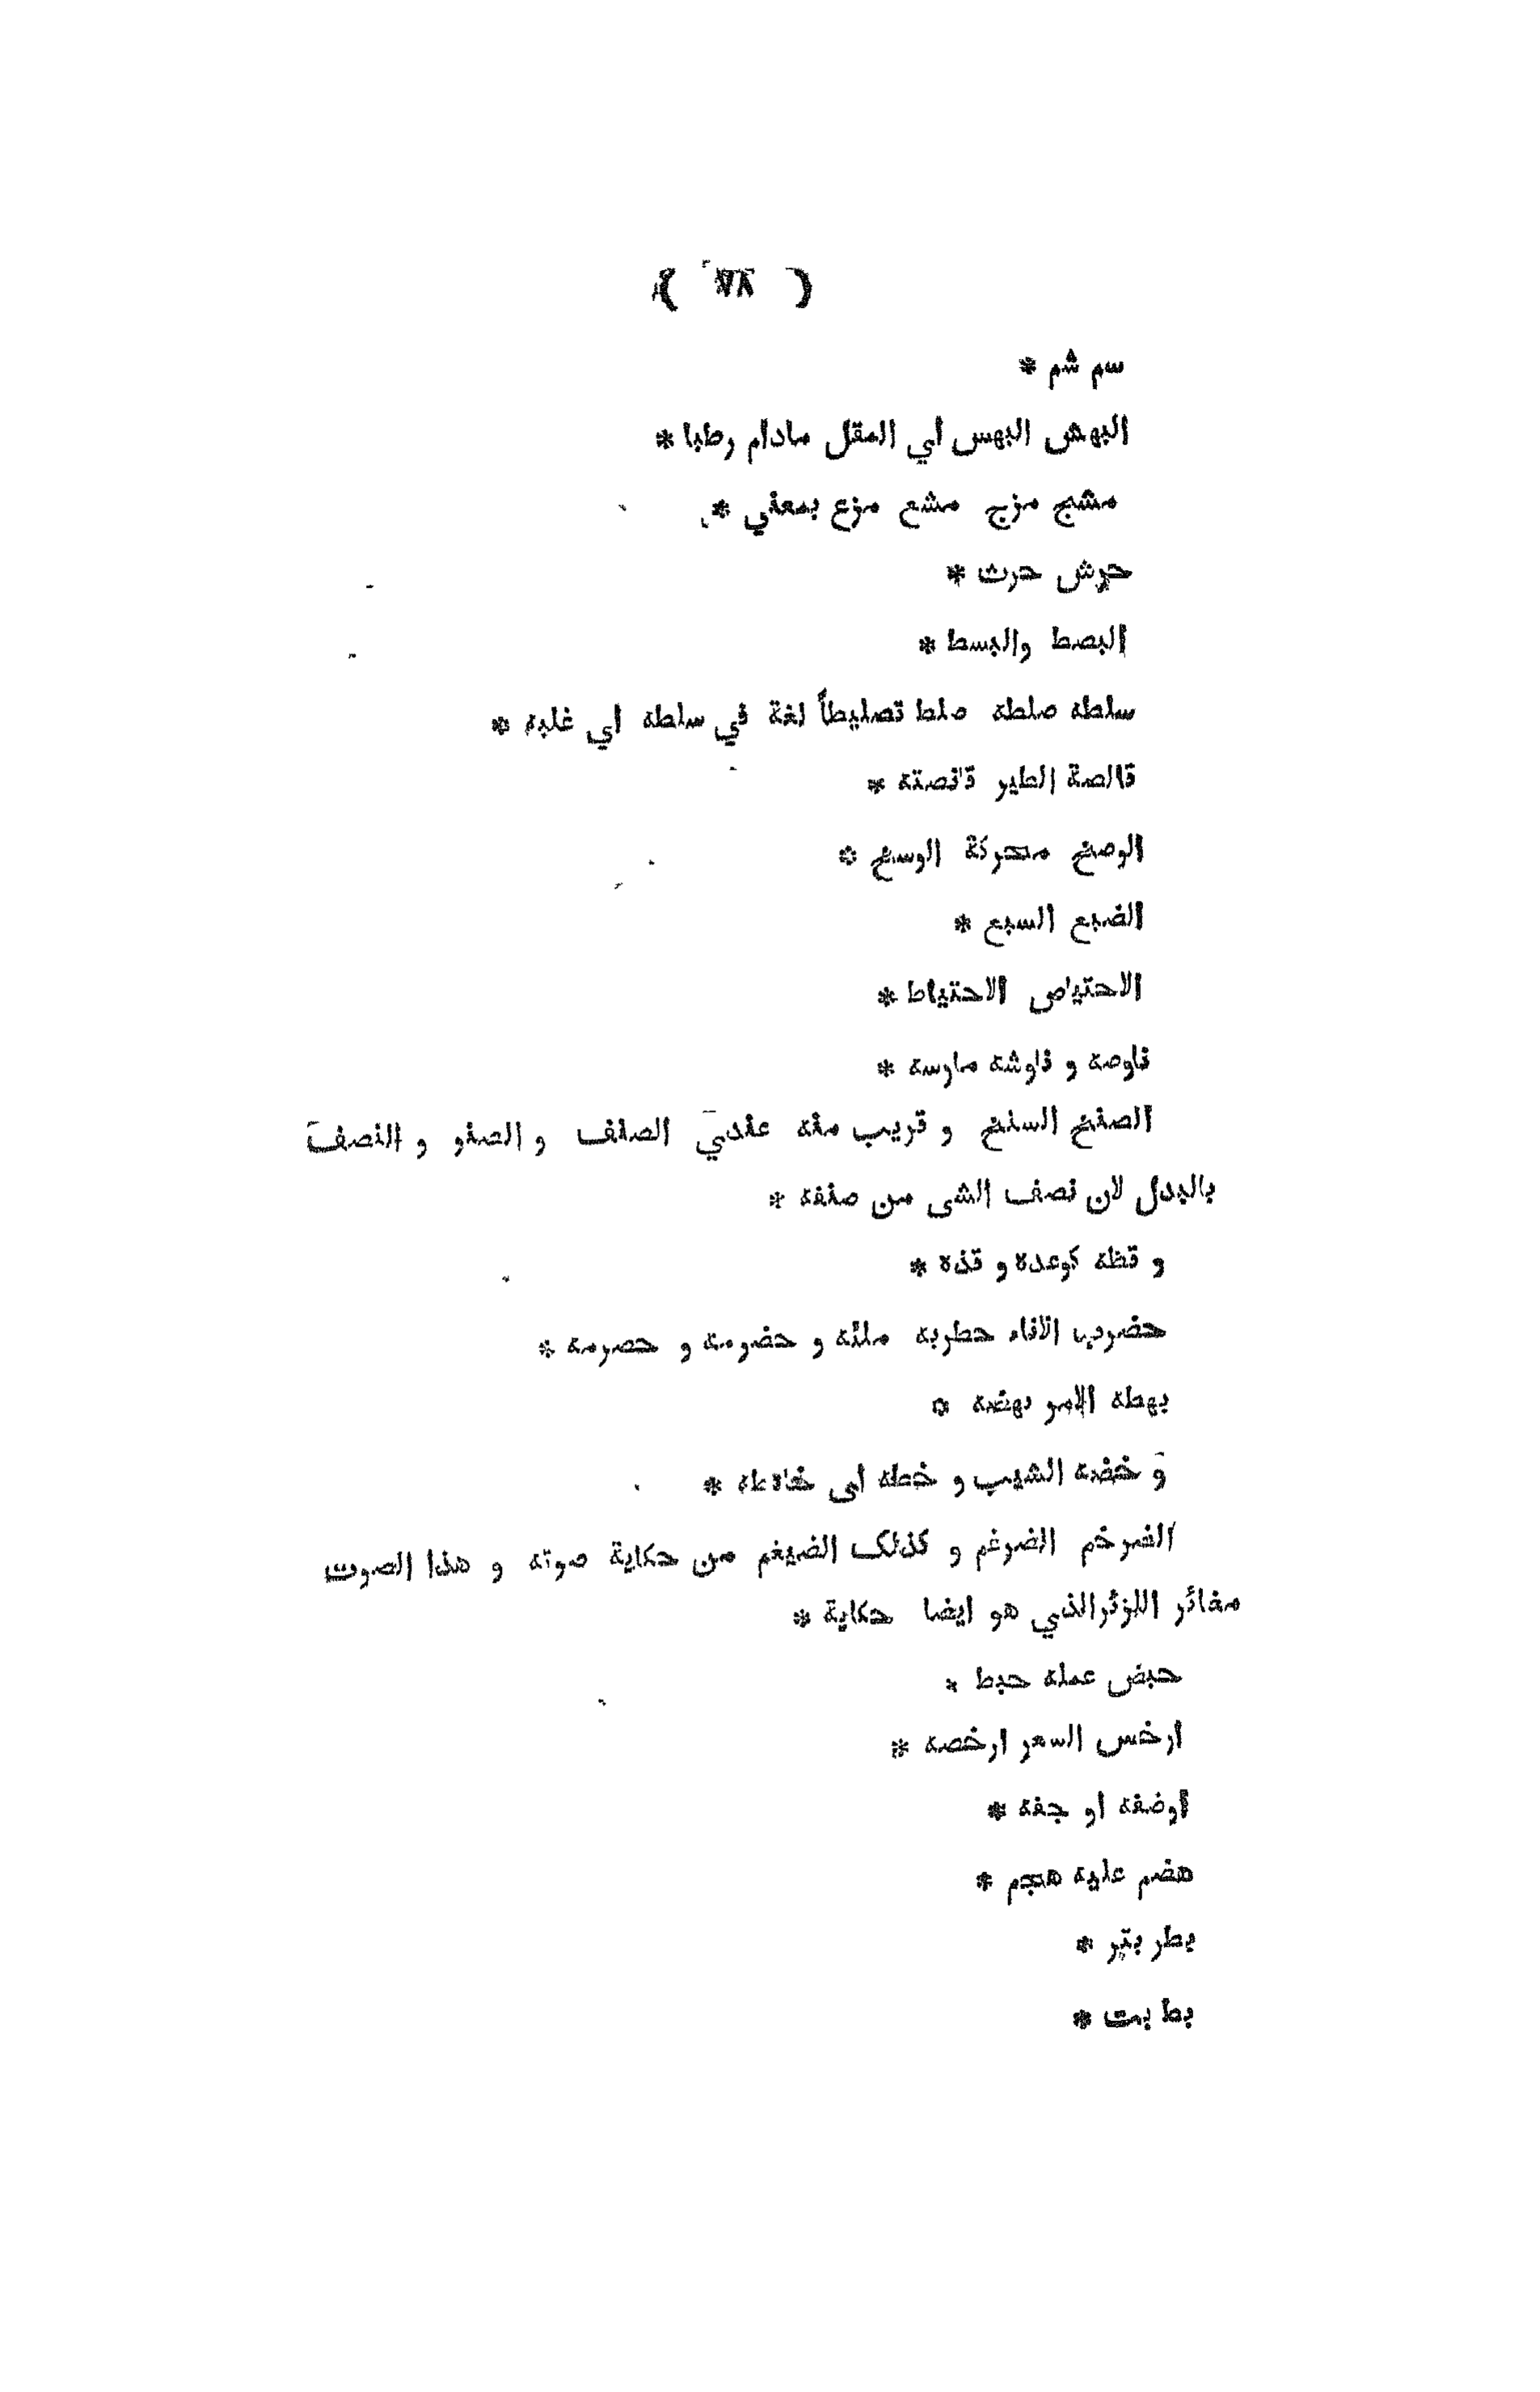 ( ٧٨ )
سم شم *
البهش البهس أي المقل مادام رطبا *
مشج مزج مشع مزع بمعني *
حرش حرث *
البصط والبسط *
سلطه صلطه صلط تصليطاً لغة في سلطه اي غلبه *
قالصة الطير قانصته *
الوصخ محركة الوسخ *
الضبع السبع *
الاحتياص الاحتياط *
ناوصه و ناوشه مارسه *
الصنخ السنخ و قريب منه عندي الصنف و الصنو و النصف
بالبدل لان نصف الشى من صنفه *
و قظه كوعده و قذه *
حضرب الاناء حطربه ملئه و حضرمه و حصرمه *
بهطه الامر بهضه *
و خضبه الشيب و خطه أى خالطه *
الضرخم الضرغم و كذلك الضيغم من حكاية صوته و هذا الصوت
مغائر الزئرالذي هو ايضا حكاية *
حبض عمله حبط *
ارخس السعر ارخصه *
اوضفه او جفه *
هضم عليه هجم *
بطر بتر *
بط بت *